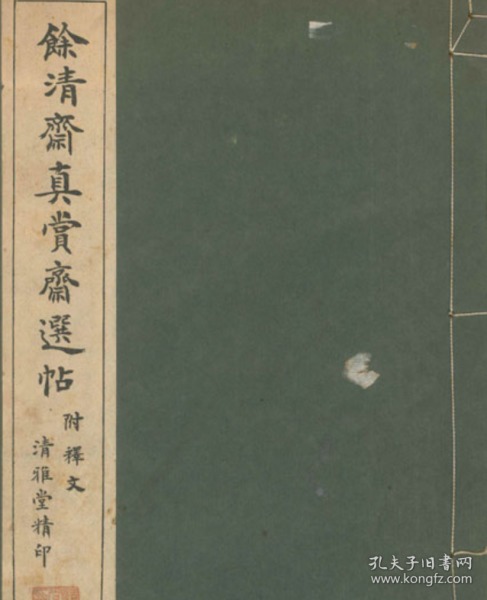 餘清齋真賞齋選帖
附釋文
清雅堂精印
孔夫子旧书网
www.kongfz.com